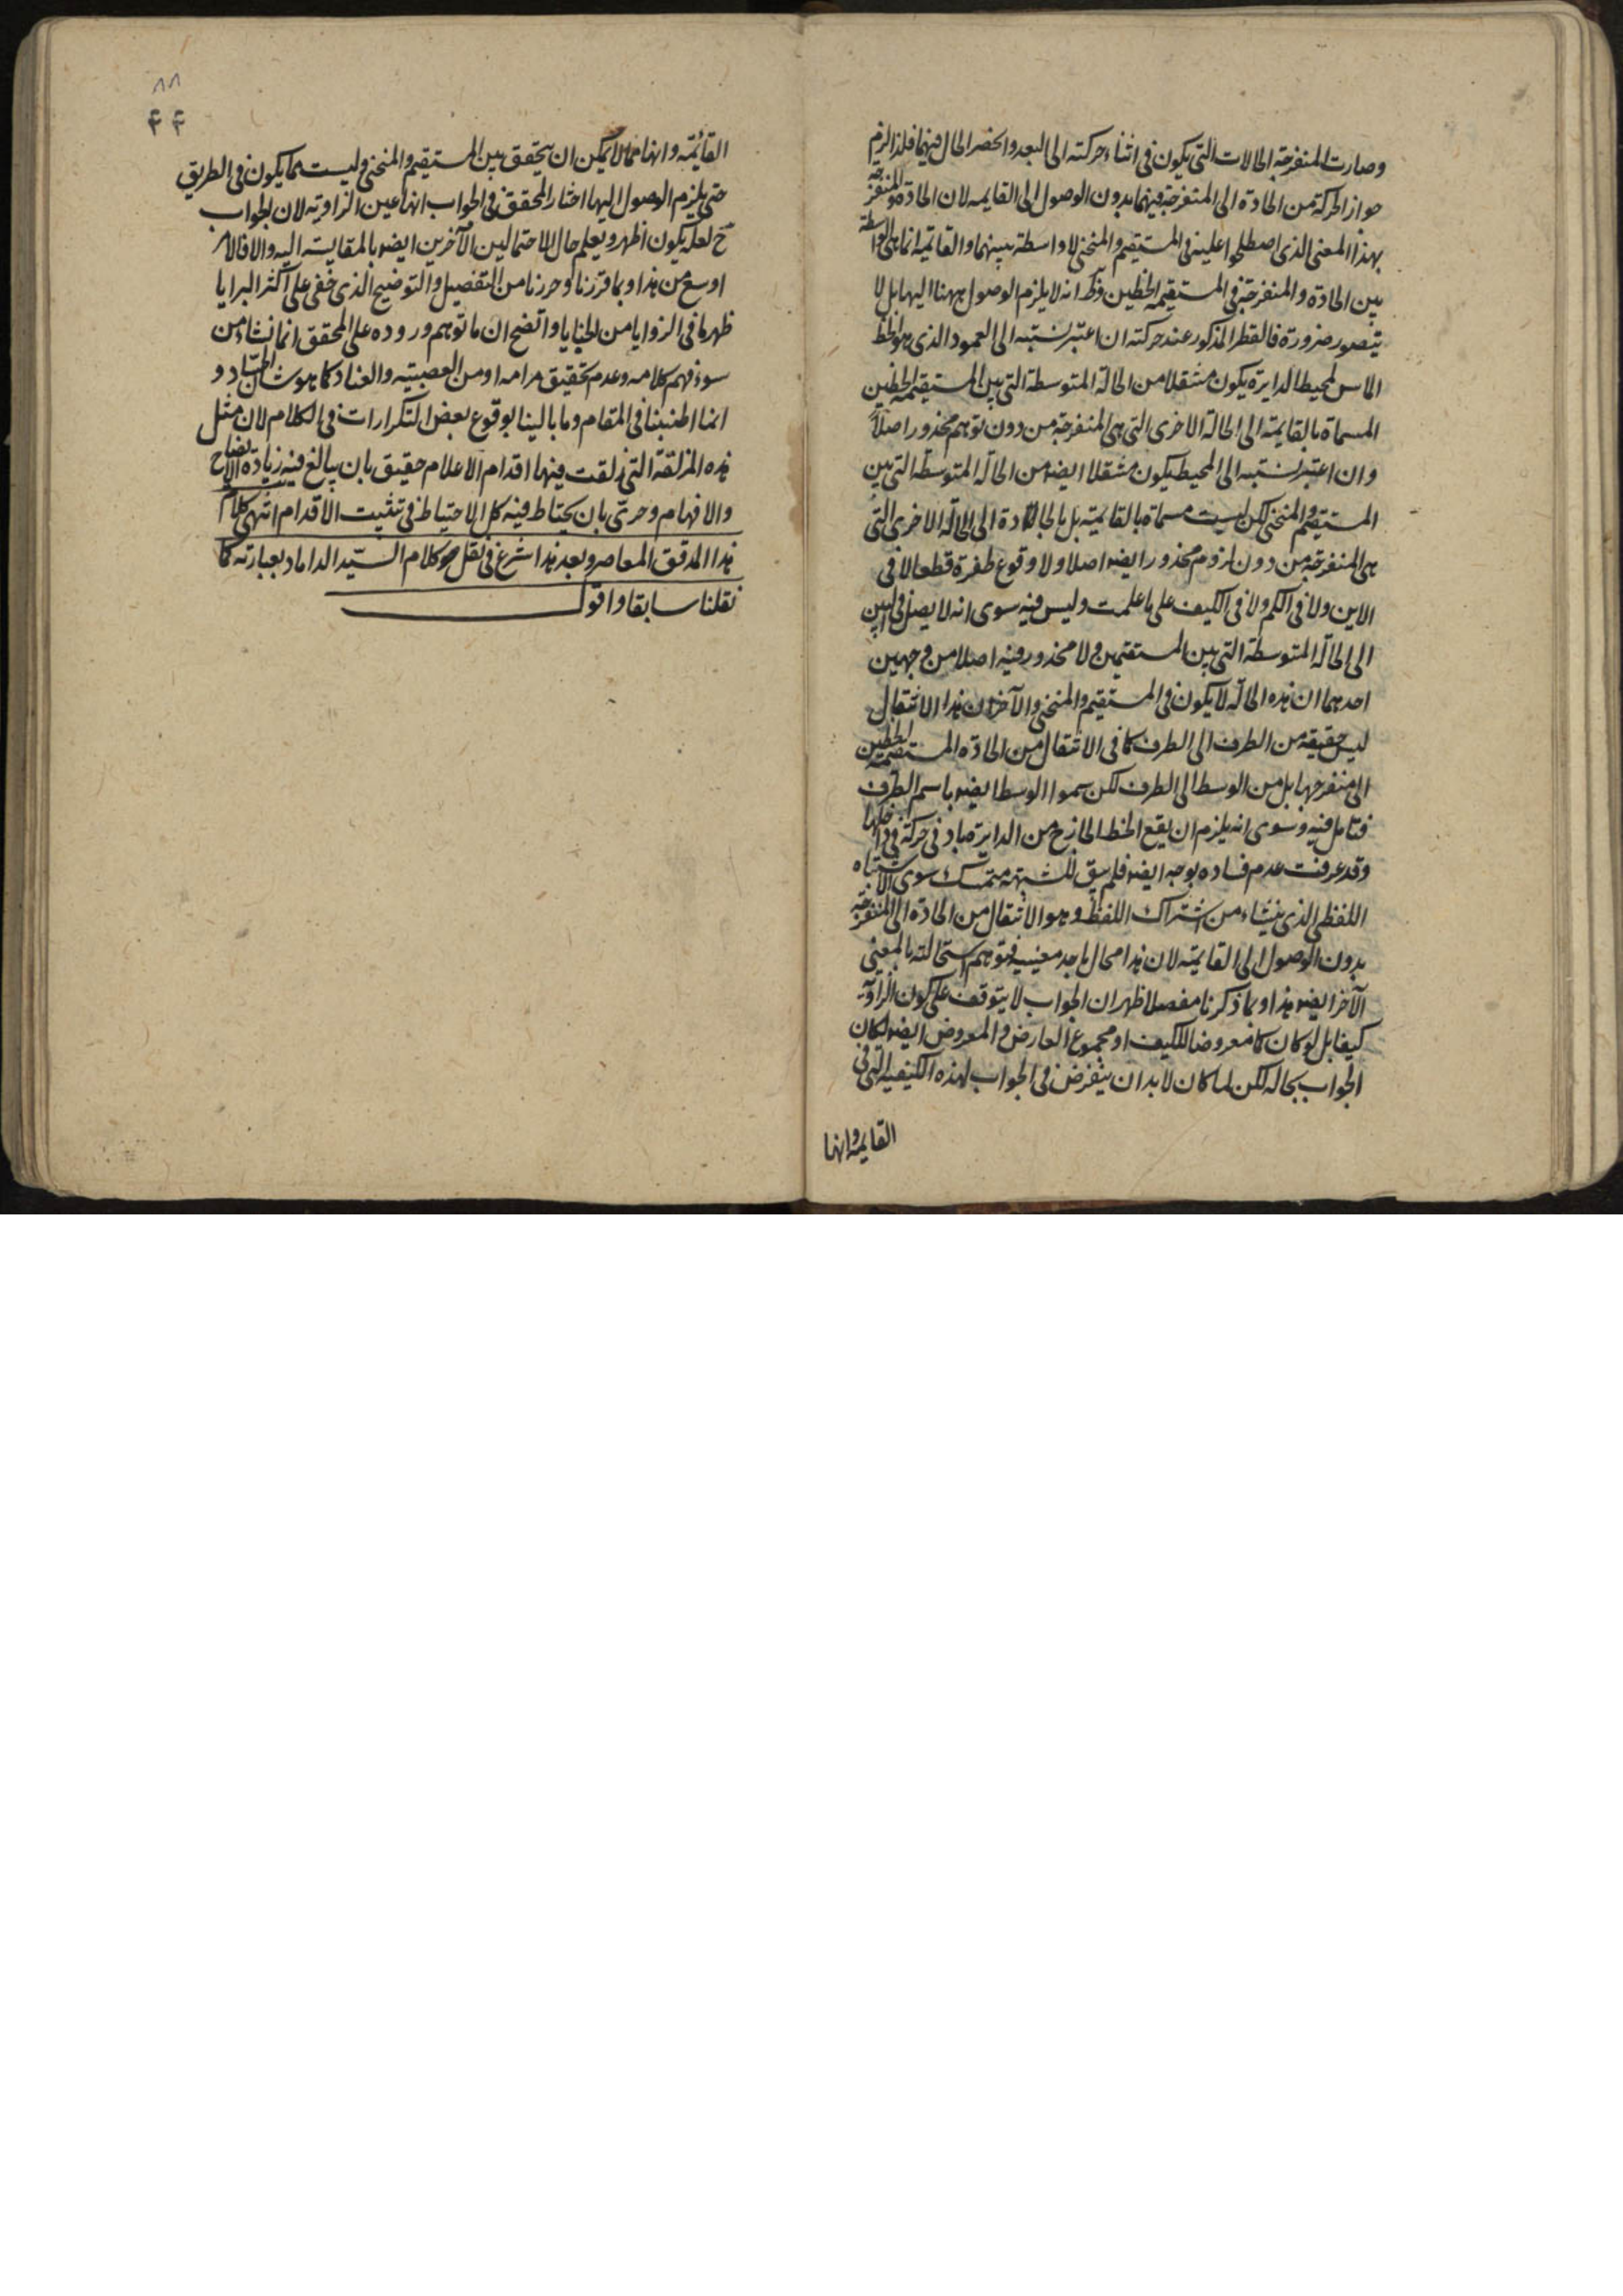 وصارت المنفرجة الحالات التى يكون فى اثناء حركته الى البعد وانحصر الحال فيهما فلذا لزم
جواز الحركة من الحادة الى المنفرجة فيهما بدون الوصول الى القايمه لان الحادة والمنفرجة
بهذا المعنى الذى اصطلحوا عليه فى المستقيم والمنحنى لا واسطة بينهما والقائمه انما هى الواسطة
بين الحادة والمنفرجة فى المستقيمة الخطين فظ انه لا يلزم الوصول ههنا اليها بل لا
يتصور ضرورة فالقطر المذكور عند حركته ان اعتبر نسبته الى العمود الذى هو الخط
الماس لمحيط الدايرة يكون منتقلا من الحالة المتوسطة التى بين المستقيمة الخطين
المسماة بالقايمة الى الحالة الاخرى التى هى المنفرجة من دون توهم محذور اصلا
وان اعتبر نسبته الى المحيط يكون منتقلا ايضه من الحالة المتوسطة التى بين
المستقيم والمنحنى لكن ليست مسماة بالقايمة بل بالحادة الى الحالة الاخرى التى
هى المنفرجة من دون لزوم محذور ايضه اصلا ولا وقوع طفرة قطعا لا فى
الاين ولا فى الكم ولا فى الكيف على ما علمت وليس فيه سوى انه لا يصل فى البين
الى الحالة المتوسطة التى بين المستقيمين ولا محذور فيه اصلا من وجهين
احدهما ان هذه الحالة لا يكون فى المستقيم والمنحنى والآخر ان هذا الانتقال
ليس حقيقه من الطرف الى الطرف كما فى الانتقال من الحادة المستقيمة الخطين
الى منفرجها بل من الوسط الى الطرف لكن سموا الوسط ايضه باسم الطرف
فتامل فيه وسوى انه يلزم ان يقع الخط الخارج من الدايرة صادفى حركة فى داخلها
وقد عرفت عدم فساده بوجه ايضه فلم يبق للشبهة متمسك سوى الاشتباه
اللفظى الذى ينشاء من اشتراك اللفظ وهو الانتقال من الحادة الى المنفرجة
بدون الوصول الى القايمة لان هذا محال باحد معنييه فتوهم استحالته بالمعنى
الآخر ايضه هذا وبما ذكرنا مفصلا ظهر ان الجواب لا يتوقف على كون الزاوية
كيفا بل لو كان كما معروضا للكيف او مجموع العارض والمعروض ايضه لكان
الجواب بحاله لكن لما كان لا بد ان يتعرض فى الجواب لهذه الكيفية التى فى
القايمه وانها
٨٨
۴۴
القائمة وانها مما لا يمكن ان يتحقق بين المستقيم والمنحنى وليست مما يكون فى الطريق
حتى يلزم الوصول اليها اختار المحقق فى الجواب انها عين الزاوية لان الجواب
ح لعله يكون اظهر ويعلم حال الاحتمالين الآخرين ايضه بالمقايسة اليه والا فالامر
اوسع من هذا وبما قررنا وحررنا من التفصيل والتوضيح الذى خفى على اكثر البرايا
ظهر ما فى الزوايا من الخبايا واتضح ان ما توهم وروده على المحقق انما نشاء من
سوء فهم كلامه وعدم تحقيق مرامه او من العصبية والعناد كما هو شان الحساد و
انما اطنبنا فى المقام وما بالينا بوقوع بعض التكرارات فى الكلام لان مثل
هذه المزلقة التى زلقت فيها اقدام الاعلام حقيق بان يبالغ فيه زيادة الايضاح
والافهام وحرى بان يحتاط فيه كل الاحتياط فى تثبيت الاقدام انتهى كلام
هذا المدقق المعاصر وبعد هذا اشرع فى نقل كلام السيد الداماد بعبارته كما
نقلنا سابقا واقول